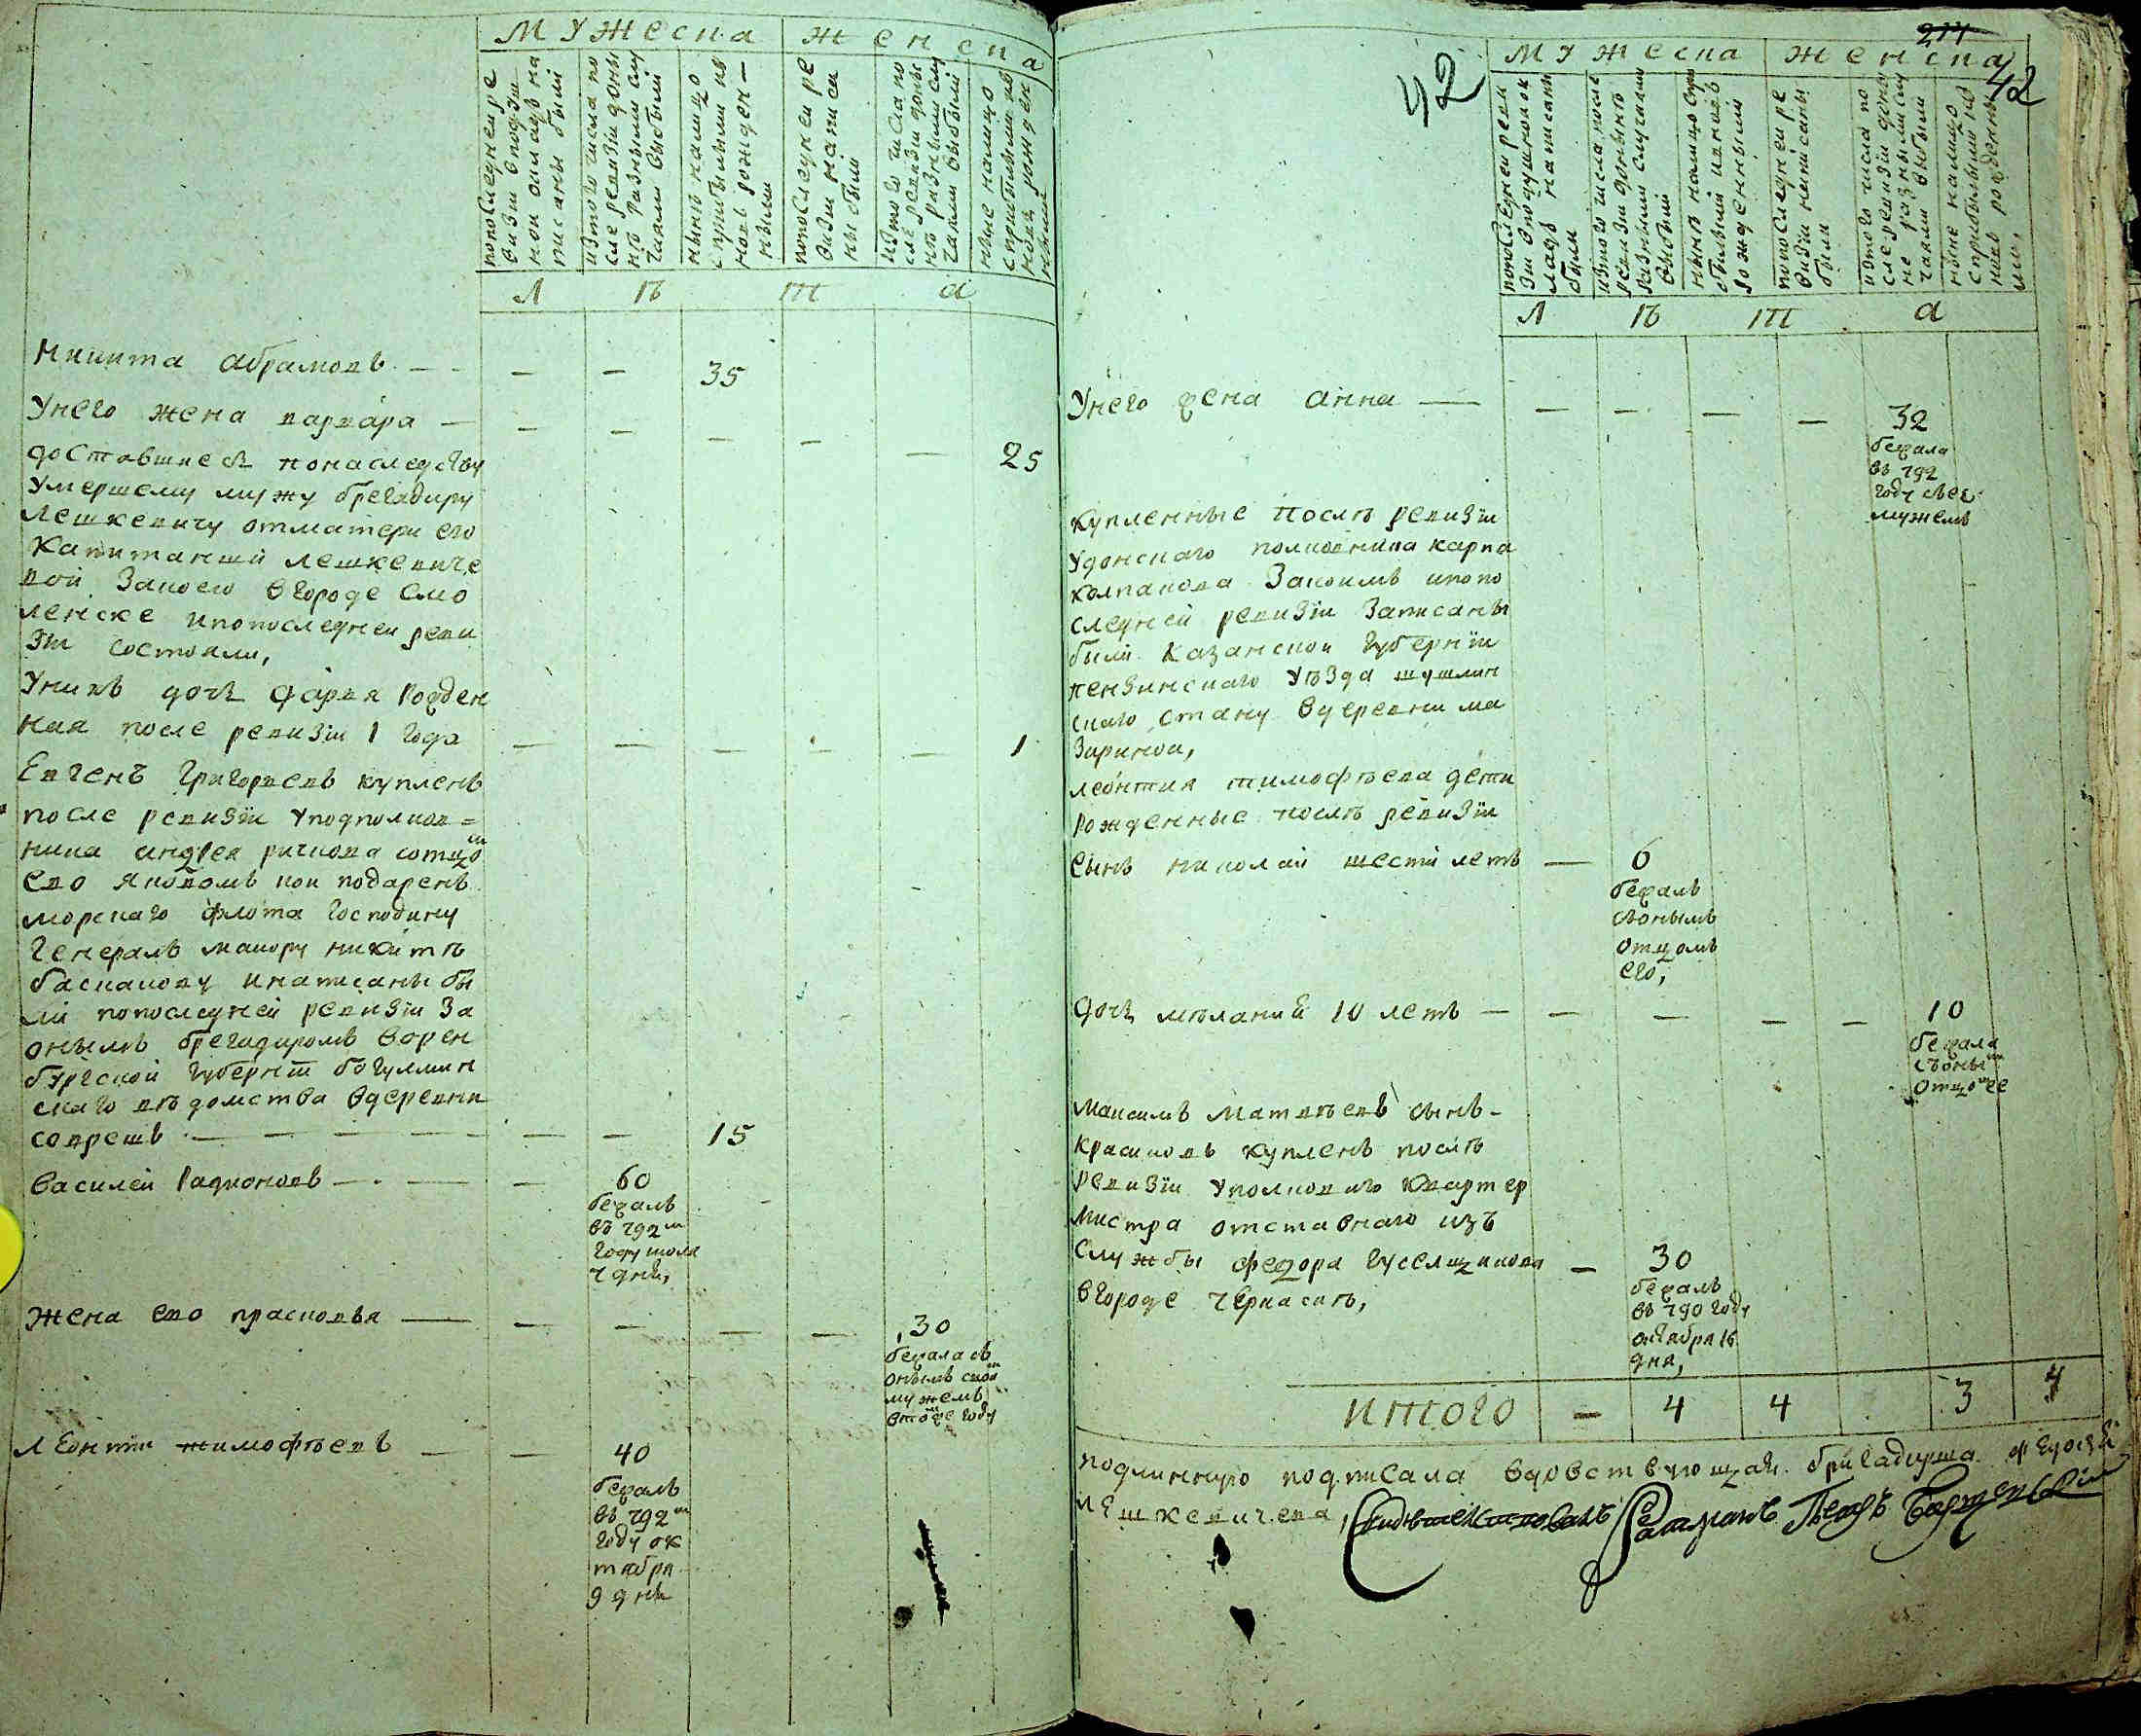 Мужеска
Женска
попоследнеи ре
визии вподуш
нои окладъ на
писаны были
изтого числа по
сле ревизіи доны
нѣ разными слу
чаями выбыли
нынѣ налицо
сприбылыми из
новь рожден—
ными
попоследнеи ре
визіи написа
ны были
изтого числа по
сле ревизіи доны
нѣ разными слу
чаями выбыли
ныне налицо
сприбылыми из
новь рожден
ными
Л ѣ т а
Никита Абрамовъ — — — 35
Унего жена варвара — — — — — — 25
доставшиеся понаследству
умершему мужу брегадиру
Лешкевичу отматери его
Капитанши лешкевиче
вой закоею вгороде Смо
ленске ипопоследнеи реви
зіи состояли,
Унихъ дочь дарья рожден
ная после ревизіи 1 года — — — — — 1
Евгенъ Григорьевъ купленъ
после ревизіи уподполков=
ника андрея ричкова сотцо м
ево Яковомъ кои подаренъ
морскаго флота господину
генералъ маиору никитѣ
баскакову инаписаны бы
ли попоследней ревизіи за
онымъ брегадиромъ ворен
бургской губерніи бугулмин
скаго вѣдомства вдеревни
соврешъ — — — — — — 15
Василеи Радионовъ — — — 60
бежалъ
въ 792 м
году июля
4 дня,
Жена ево прасковья — — — — — 30
бежала съ
онымъ свои м
мужемъ
втомже году
Леонтіи тимофѣевъ — — 40
бежалъ
въ 792 м
году ок
тября
9 дня
42
214
42
Мужеска
Женска
попоследнеи реви
зіи вподушнои ок
ладъ написаны
были
изтого числа после
ревизіи донынѣ
разными случаями
выбыли
нынѣ налицо спри
былыми ивновь
рожденными
попоследнеи ре
визіи написаны
были
изтого числа по
сле ревизіи доны
не разными слу
чаями выбыли
ныне налицо
сприбылыми из
новь рожденны
ми,
Л ѣ т а
Унего жена анна — — — — — 32
бежала
въ 792
году свег
мужемъ
купленные послѣ ревизіи
удонскаго полковника карпа
колпакова закоимъ ипопо
следней ревизіи записаны
были Казанской губерніи
пензинскаго уѣзда шушлин
скаго стану вдеревни ма
зариной,
леонтия тимофѣева дети
рожденные послѣ ревизіи
сынъ николаи шести летъ — 6
бежалъ
сьонымъ
отцомъ
его,
дочь мѣланиѣ 10 летъ — — — — — 10
бежала
съоны м
отцо м ее
Максимъ Матвѣевъ сынъ-
Красиковъ купленъ послѣ
ревизіи уполковаго квартер
мистра отставнаго изъ
службы федора гуселщикова — 30
вгороде черкаскѣ,
бежалъ
въ 790 году
октября 16
дня,
итого — 4 4 3 4
подлинную подписала вдовствующая бригадирша федосьѣ
лешкевичева,